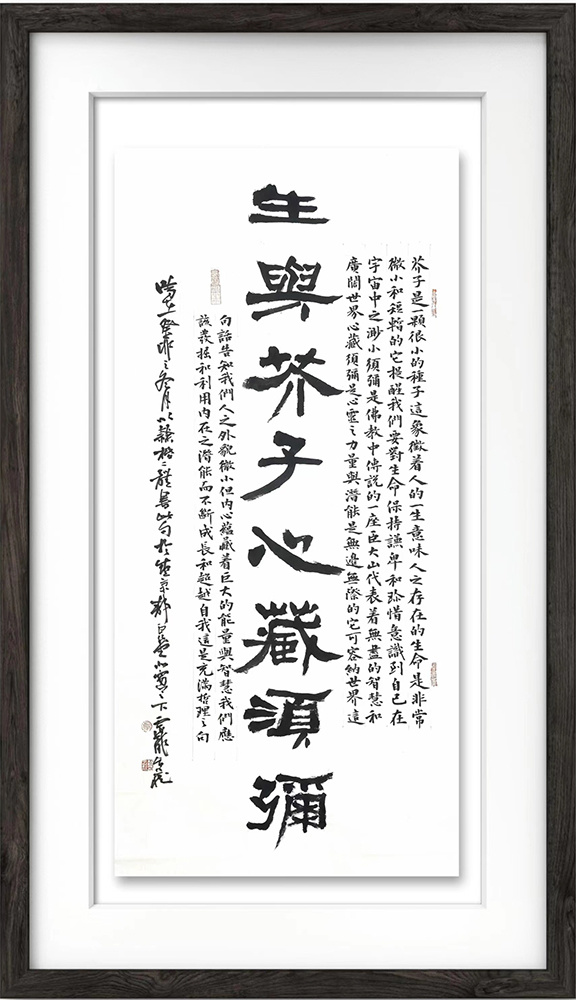 生與芥子心藏須彌
芥子是一顆很小的種子這象徵着人的一生意味人之存在的生命是非常
微小和短暫的它提醒我們要對生命保持謙卑和珍惜意識到自己在
宇宙中之渺小須彌是佛教中傳說的一座巨大山代表着無盡的智慧和
廣闊世界心藏須彌是心靈之力量與潛能是無邊無際的它可容納世界這
句話告知我們人之外貌微小但內心蘊藏着巨大的能量與智慧我們應
該發掘和利用內在之潛能而不斷成長和超越自我這是充滿哲理之句
時在癸卯之冬月以隸楷二體書此句於